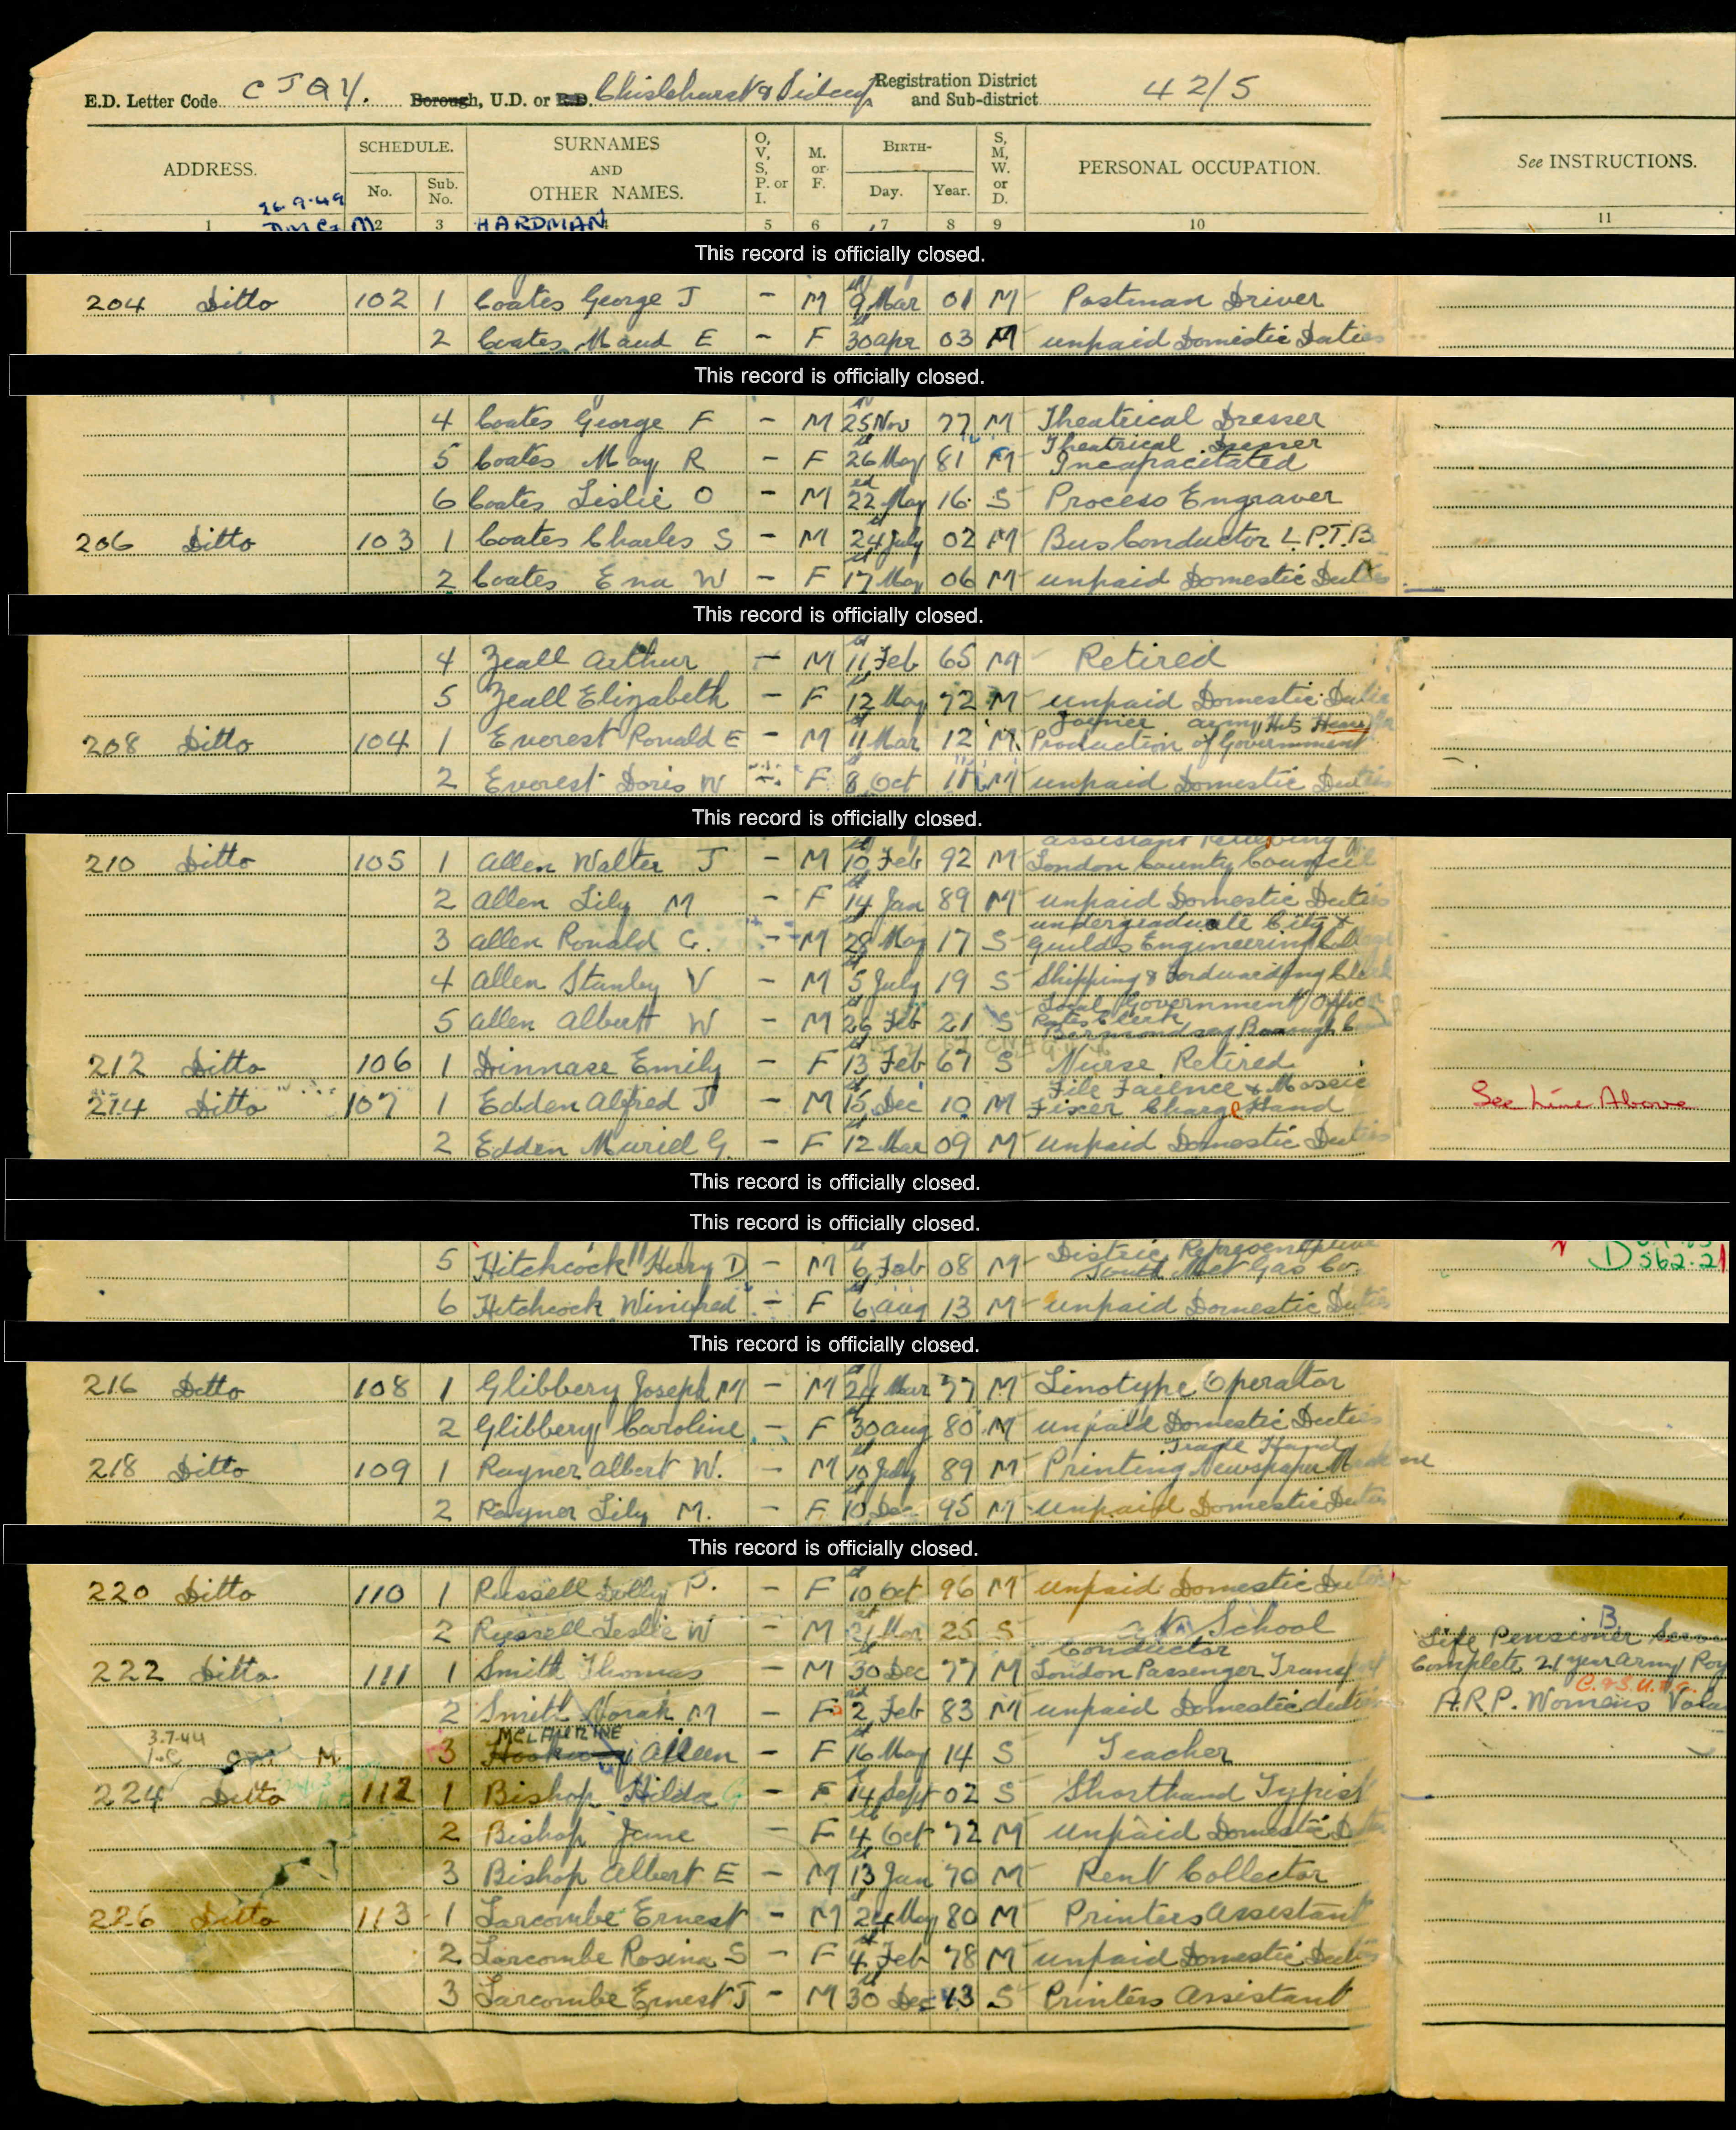 E.D. Letter Code C J Q Y. Borough, U.D. or R.D. Chislehurst & Sidcup Registration District and Sub-district 42/5
ADDRESS. SCHEDULE. No. Sub. No. SURNAMES AND OTHER NAMES. O, V, S, P. or I. M. or F. BIRTH- Day. Year. S, M, W. or D. PERSONAL OCCUPATION. See INSTRUCTIONS.
26.9.49
1 2 3 HARDMAN 5 6 7 8 9 10 11
This record is officially closed.
204 Ditto 102 1 Coates George J – M 9 Mar 01 M Postman Driver
2 Coates Maud E – F 30 Apr 03 M unpaid Domestic Duties
This record is officially closed.
4 Coates George F – M 25 Nov 77 M Theatrical Dresser
5 Coates May R – F 26 May 81 M Theatrical Dresser Incapacitated
6 Coates Leslie O – M 22 May 16 S Process Engraver
206 Ditto 103 1 Coates Charles S – M 24 July 02 M Bus Conductor L.P.T.B
2 Coates Ena W – F 17 May 06 M unpaid Domestic Duties
This record is officially closed.
4 Zeall Arthur – M 11 Feb 65 M Retired
5 Zeall Elizabeth – F 12 May 72 M unpaid Domestic Duties
208 Ditto 104 1 Everest Ronald E – M 11 Mar 12 M Joyner Army Huts Production of Government
2 Everest Doris W – F 8 Oct 11 M unpaid Domestic Duties
This record is officially closed.
210 Ditto 105 1 Allen Walter J – M 10 Feb 92 M Assistant London County Council
2 Allen Lily M – F 14 Jan 89 M unpaid Domestic Duties
3 Allen Ronald G. – M 28 May 17 S undergraduate City & Guilds Engineering College
4 Allen Stanley V – M 5 July 19 S Shipping & Forduarding Clerk
5 Allen Albert W – M 26 Feb 21 S Local Government Officer Rates Clerk Bermondsey Borough
212 Ditto 106 1 Dinnase Emily – F 13 Feb 67 S Nurse Retired
214 Ditto 107 1 Edden Alfred J – M 15 Dec 10 M Tile Faience & Mosaic Fixer Charge Hand See Line Above
2 Edden Muriel G. – F 12 Mar 09 M unpaid Domestic Duties
This record is officially closed.
This record is officially closed.
5 Hitchcock Harry D – M 6 Feb 08 M District Representative South Met Gas Co. D 362.21
6 Hitchcock Winifred – F 6 Aug 13 M unpaid Domestic Duties
This record is officially closed.
216 Ditto 108 1 Glibbery Joseph M – M 24 Mar 77 M Linotype Operator
2 Glibbery Caroline – F 30 Aug 80 M unpaid Domestic Duties
218 Ditto 109 1 Rayner Albert W. – M 10 July 89 M Trade Hand Printing Newspaper Machine
2 Rayner Lily M. – F 10 Dec 95 M unpaid Domestic Duties
This record is officially closed.
220 Ditto 110 1 Russell Dolly P. – F 10 Oct 96 M unpaid Domestic Duties
2 Russell Leslie W – M 21 Mar 25 S At School Life Pensioner
222 Ditto 111 1 Smith Thomas – M 30 Dec 77 M Conductor London Passenger Transport Complete 21 year Army
2 Smith Norah M – F 2 Feb 83 M unpaid Domestic duties A.R.P. Womens
3.7.44 M. 3 MCLAURINE Aileen – F 16 May 14 S Teacher
224 Ditto 112 1 Bishop Hilda – F 14 Sept 02 S Shorthand Typist
2 Bishop Jane – F 4 Oct 72 M unpaid Domestic Duties
3 Bishop Albert E – M 13 Jan 70 M Rent Collector
226 Ditto 113 1 Larcombe Ernest – M 24 May 80 M Printers Assistant
2 Larcombe Rosina S – F 4 Feb 78 M unpaid Domestic Duties
3 Larcombe Ernest J – M 30 Dec 13 S Printers Assistant